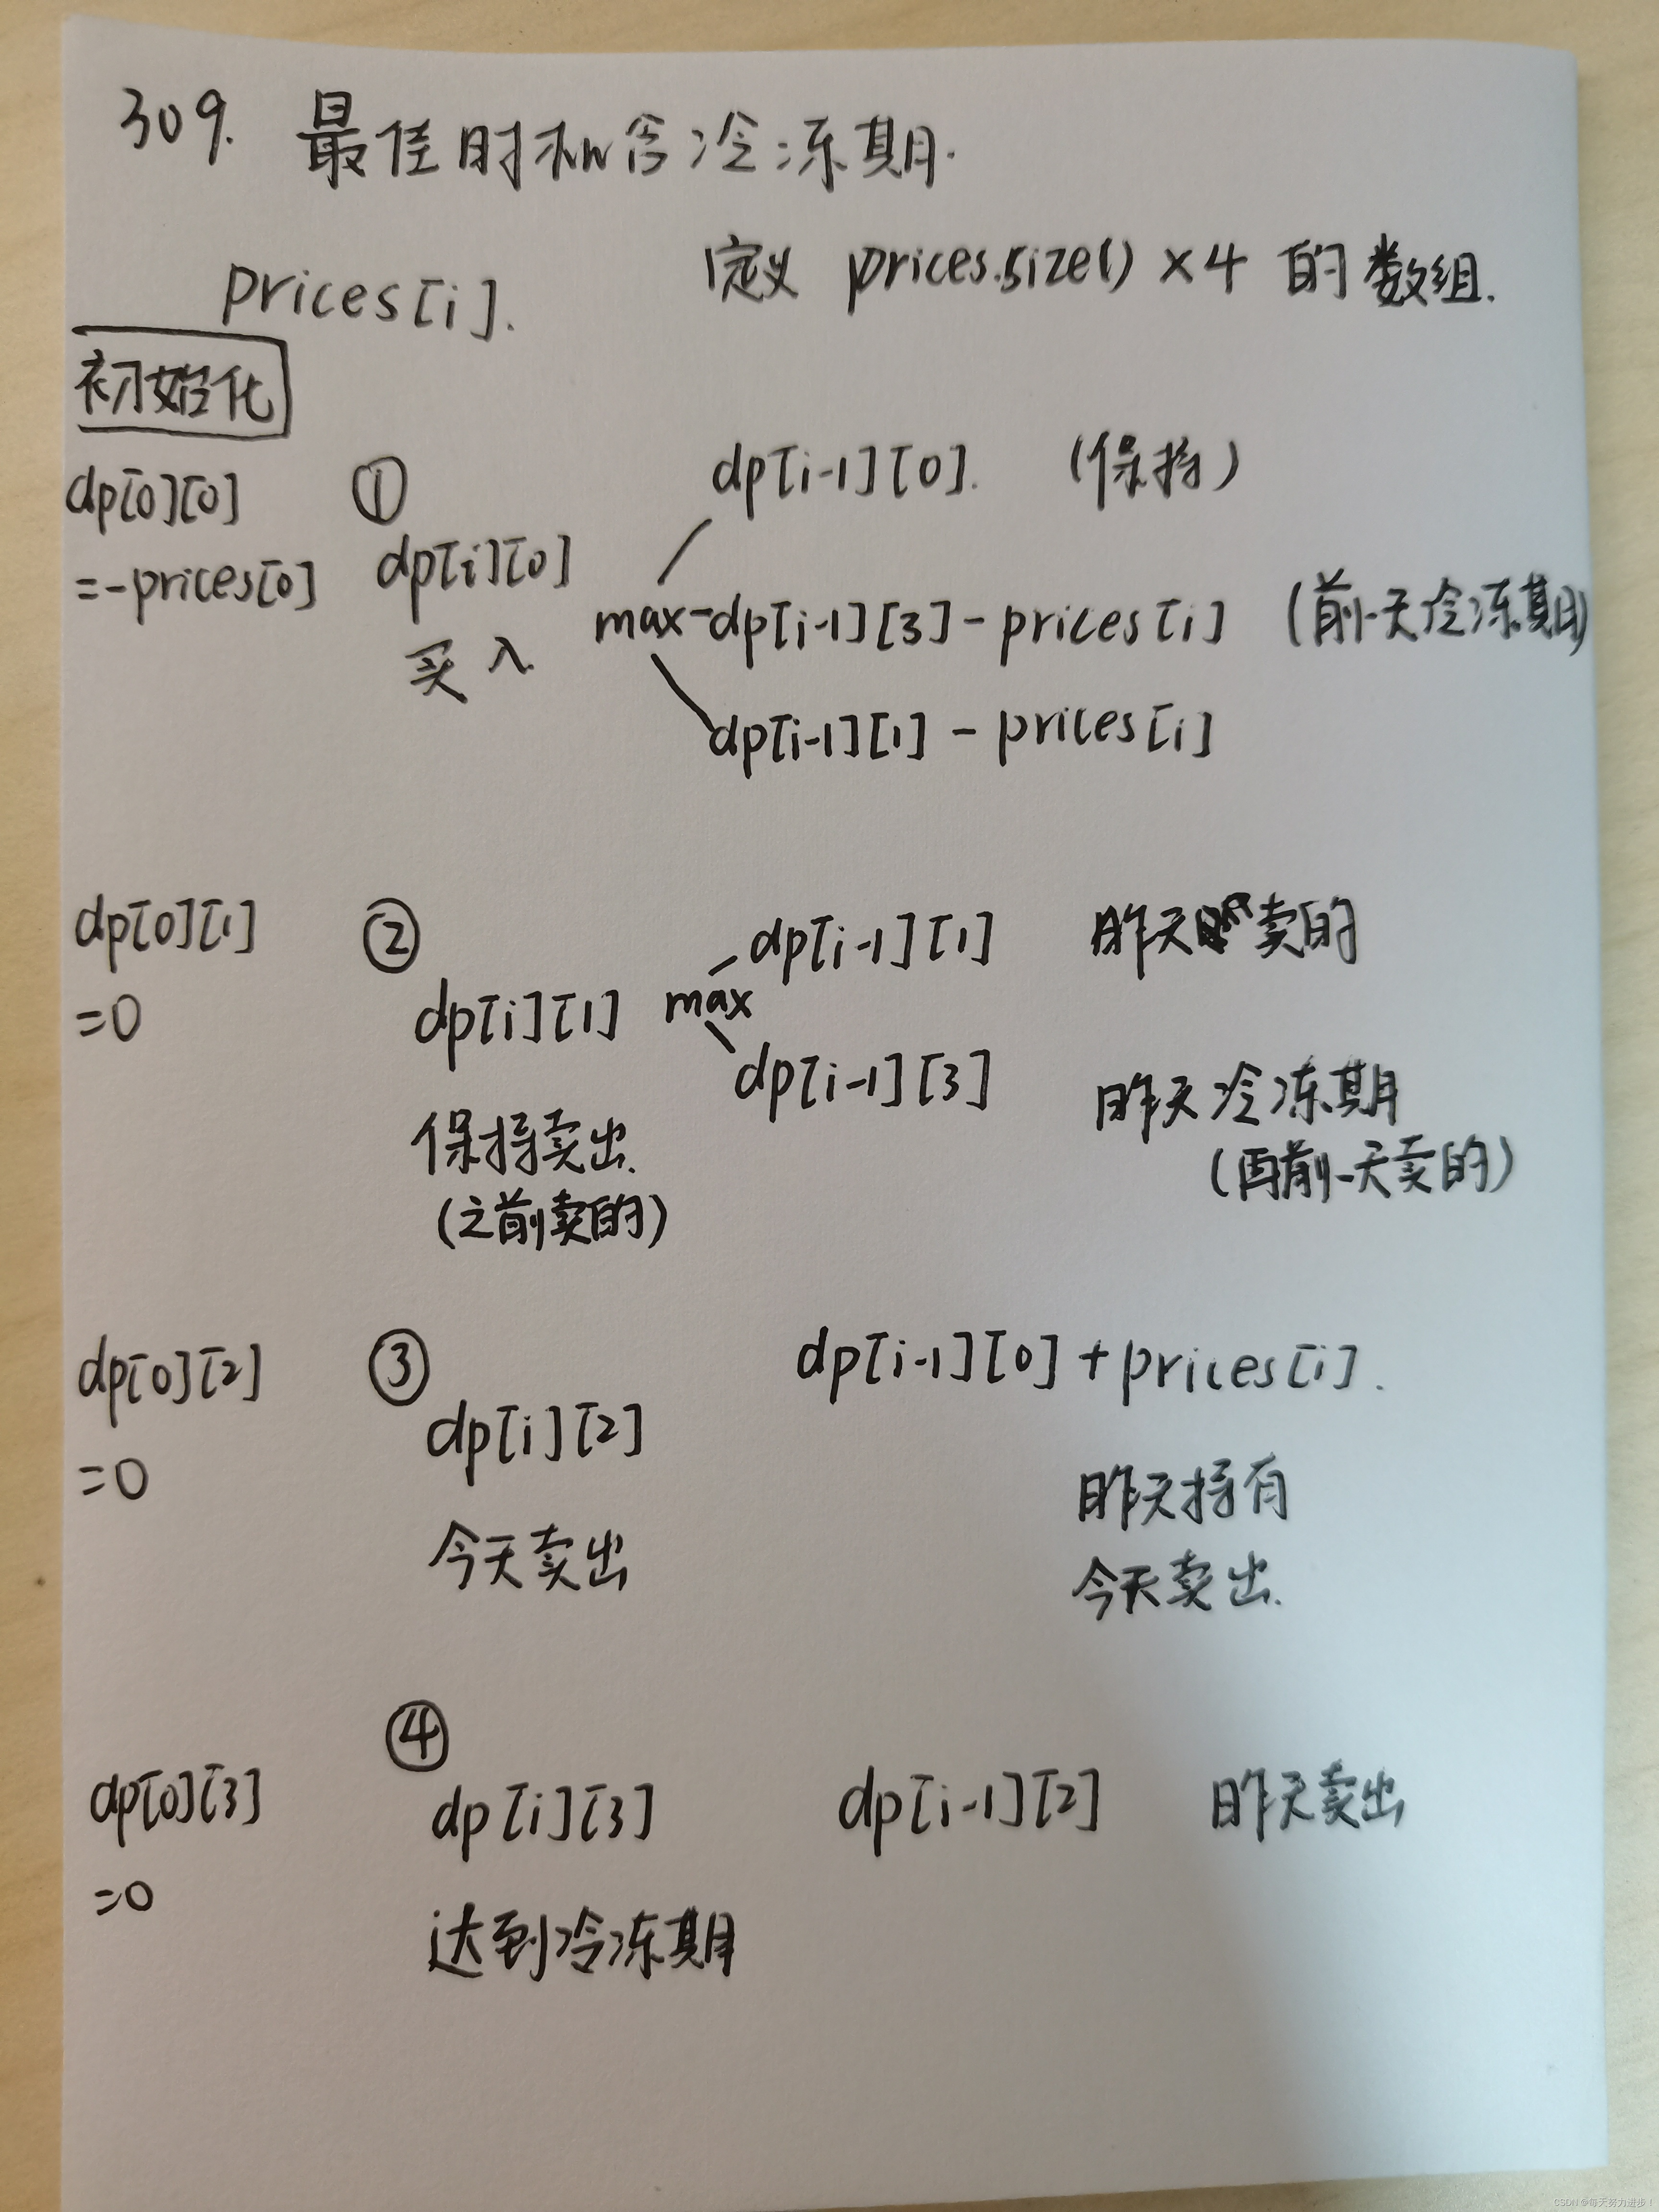 309. 最佳时机含冷冻期.
prices[i].
定义 prices.size() ×4 的数组.
初始化
dp[0][0]
=-prices[0]
①
dp[i][0]
买入
max
dp[i-1][0]. (保持)
dp[i-1][3] - prices[i] (前一天冷冻期)
dp[i-1][1] - prices[i]
dp[0][1]
=0
②
dp[i][1]
保持卖出.
(之前卖的)
max
dp[i-1][1] 昨天卖的
dp[i-1][3] 昨天冷冻期
(再前一天卖的)
dp[0][2]
=0
③
dp[i][2]
今天卖出
dp[i-1][0] + prices[i].
昨天持有
今天卖出.
dp[0][3]
=0
④
dp[i][3]
达到冷冻期
dp[i-1][2] 昨天卖出
CSDN @每天努力进步!